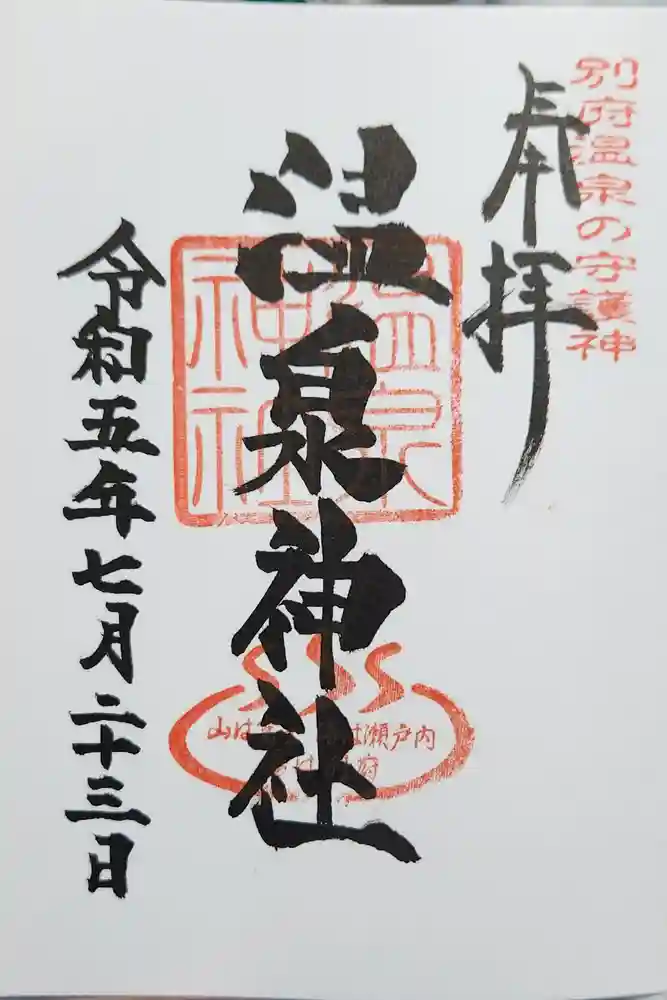 別府温泉の守護神
奉拝
温泉神社
温泉
神社
山は
は瀬戸内
は
府
令和五年七月二十三日